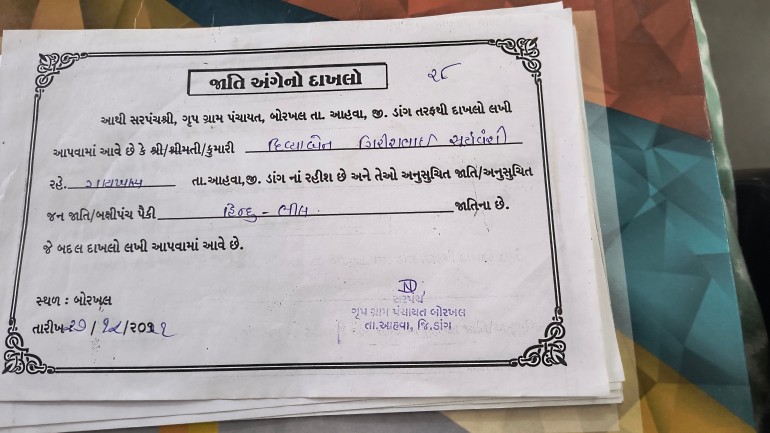 જાતિ અંગેનો દાખલો
૨૮
આથી સરપંચશ્રી, ગૃપ ગ્રામ પંચાયત, બોરખલ તા. આહવા, જી. ડાંગ તરફથી દાખલો લખી
આપવામાં આવે છે કે શ્રી/શ્રીમતી/કુમારી દિવ્યાબેન ગિરીશભાઈ સૂર્યવંશી
રહે. તા.આહવા,જી. ડાંગ નાં રહીશ છે અને તેઓ અનુસુચિત જાતિ/અનુસુચિત
જન જાતિ/બક્ષીપંચ પૈકી હિન્દુ - ભીલ જાતિના છે.
જે બદલ દાખલો લખી આપવામાં આવે છે.
સ્થળ : બોરખલ
સરપંચ
ગૃપ ગ્રામ પંચાયત બોરખલ
તારીખ
તા.આહવા, જિ.ડાંગ